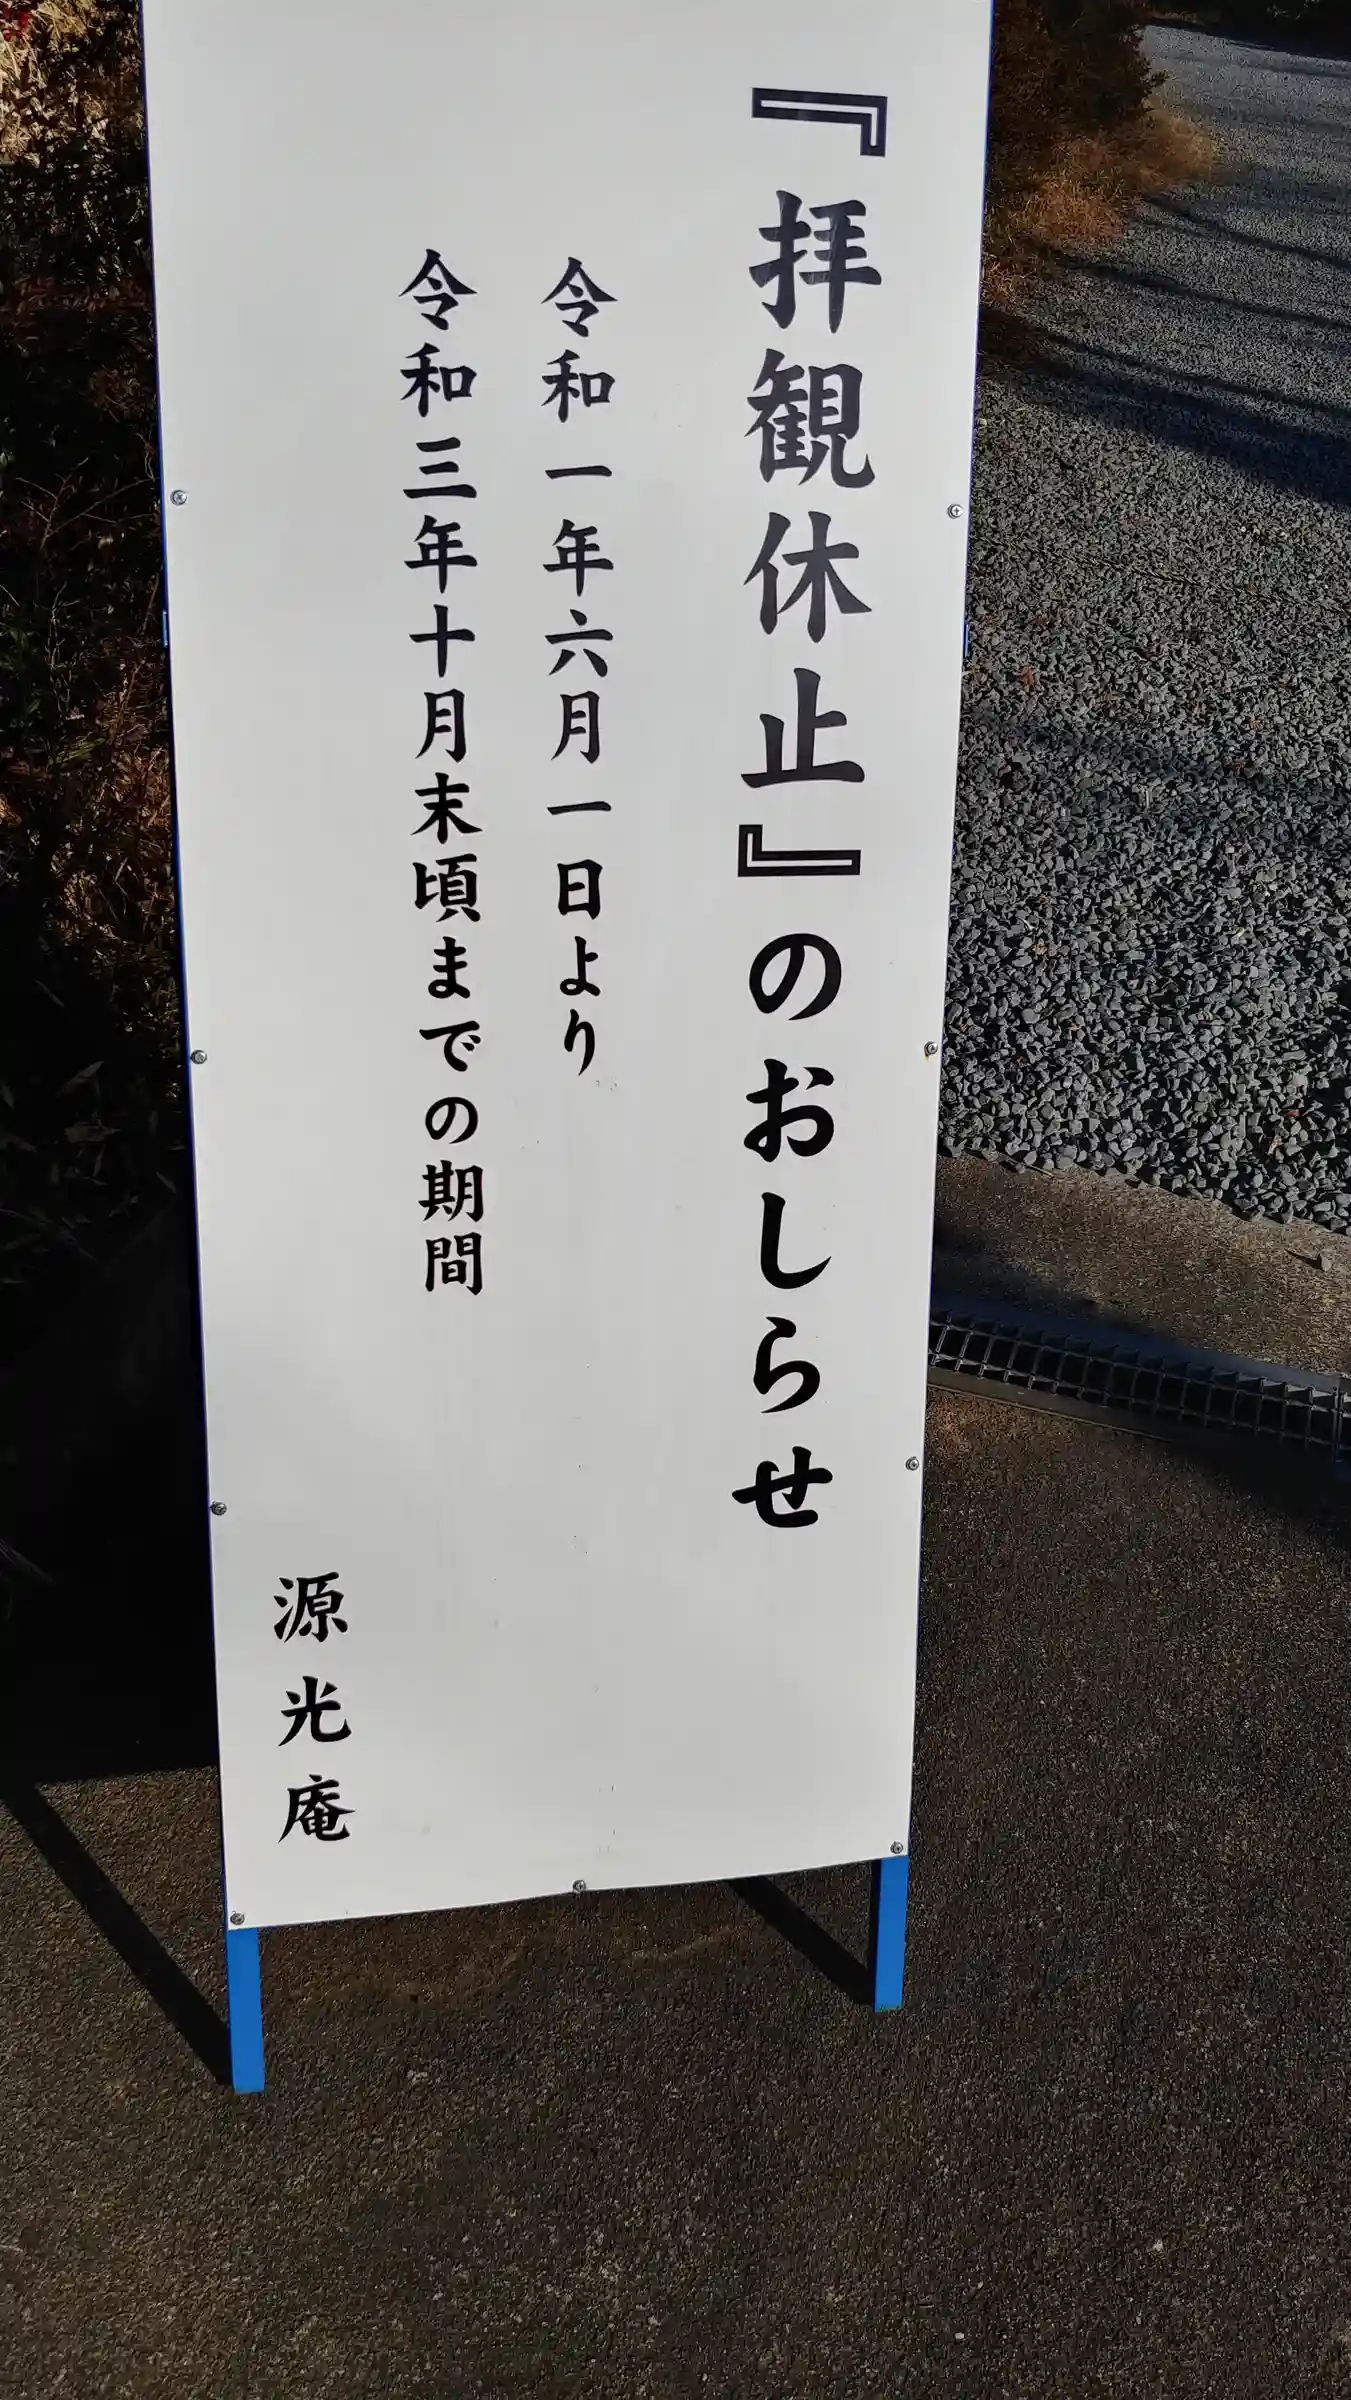 『拝観休止』のおしらせ
令和一年六月一日より
令和三年十月末頃までの期間
源光庵